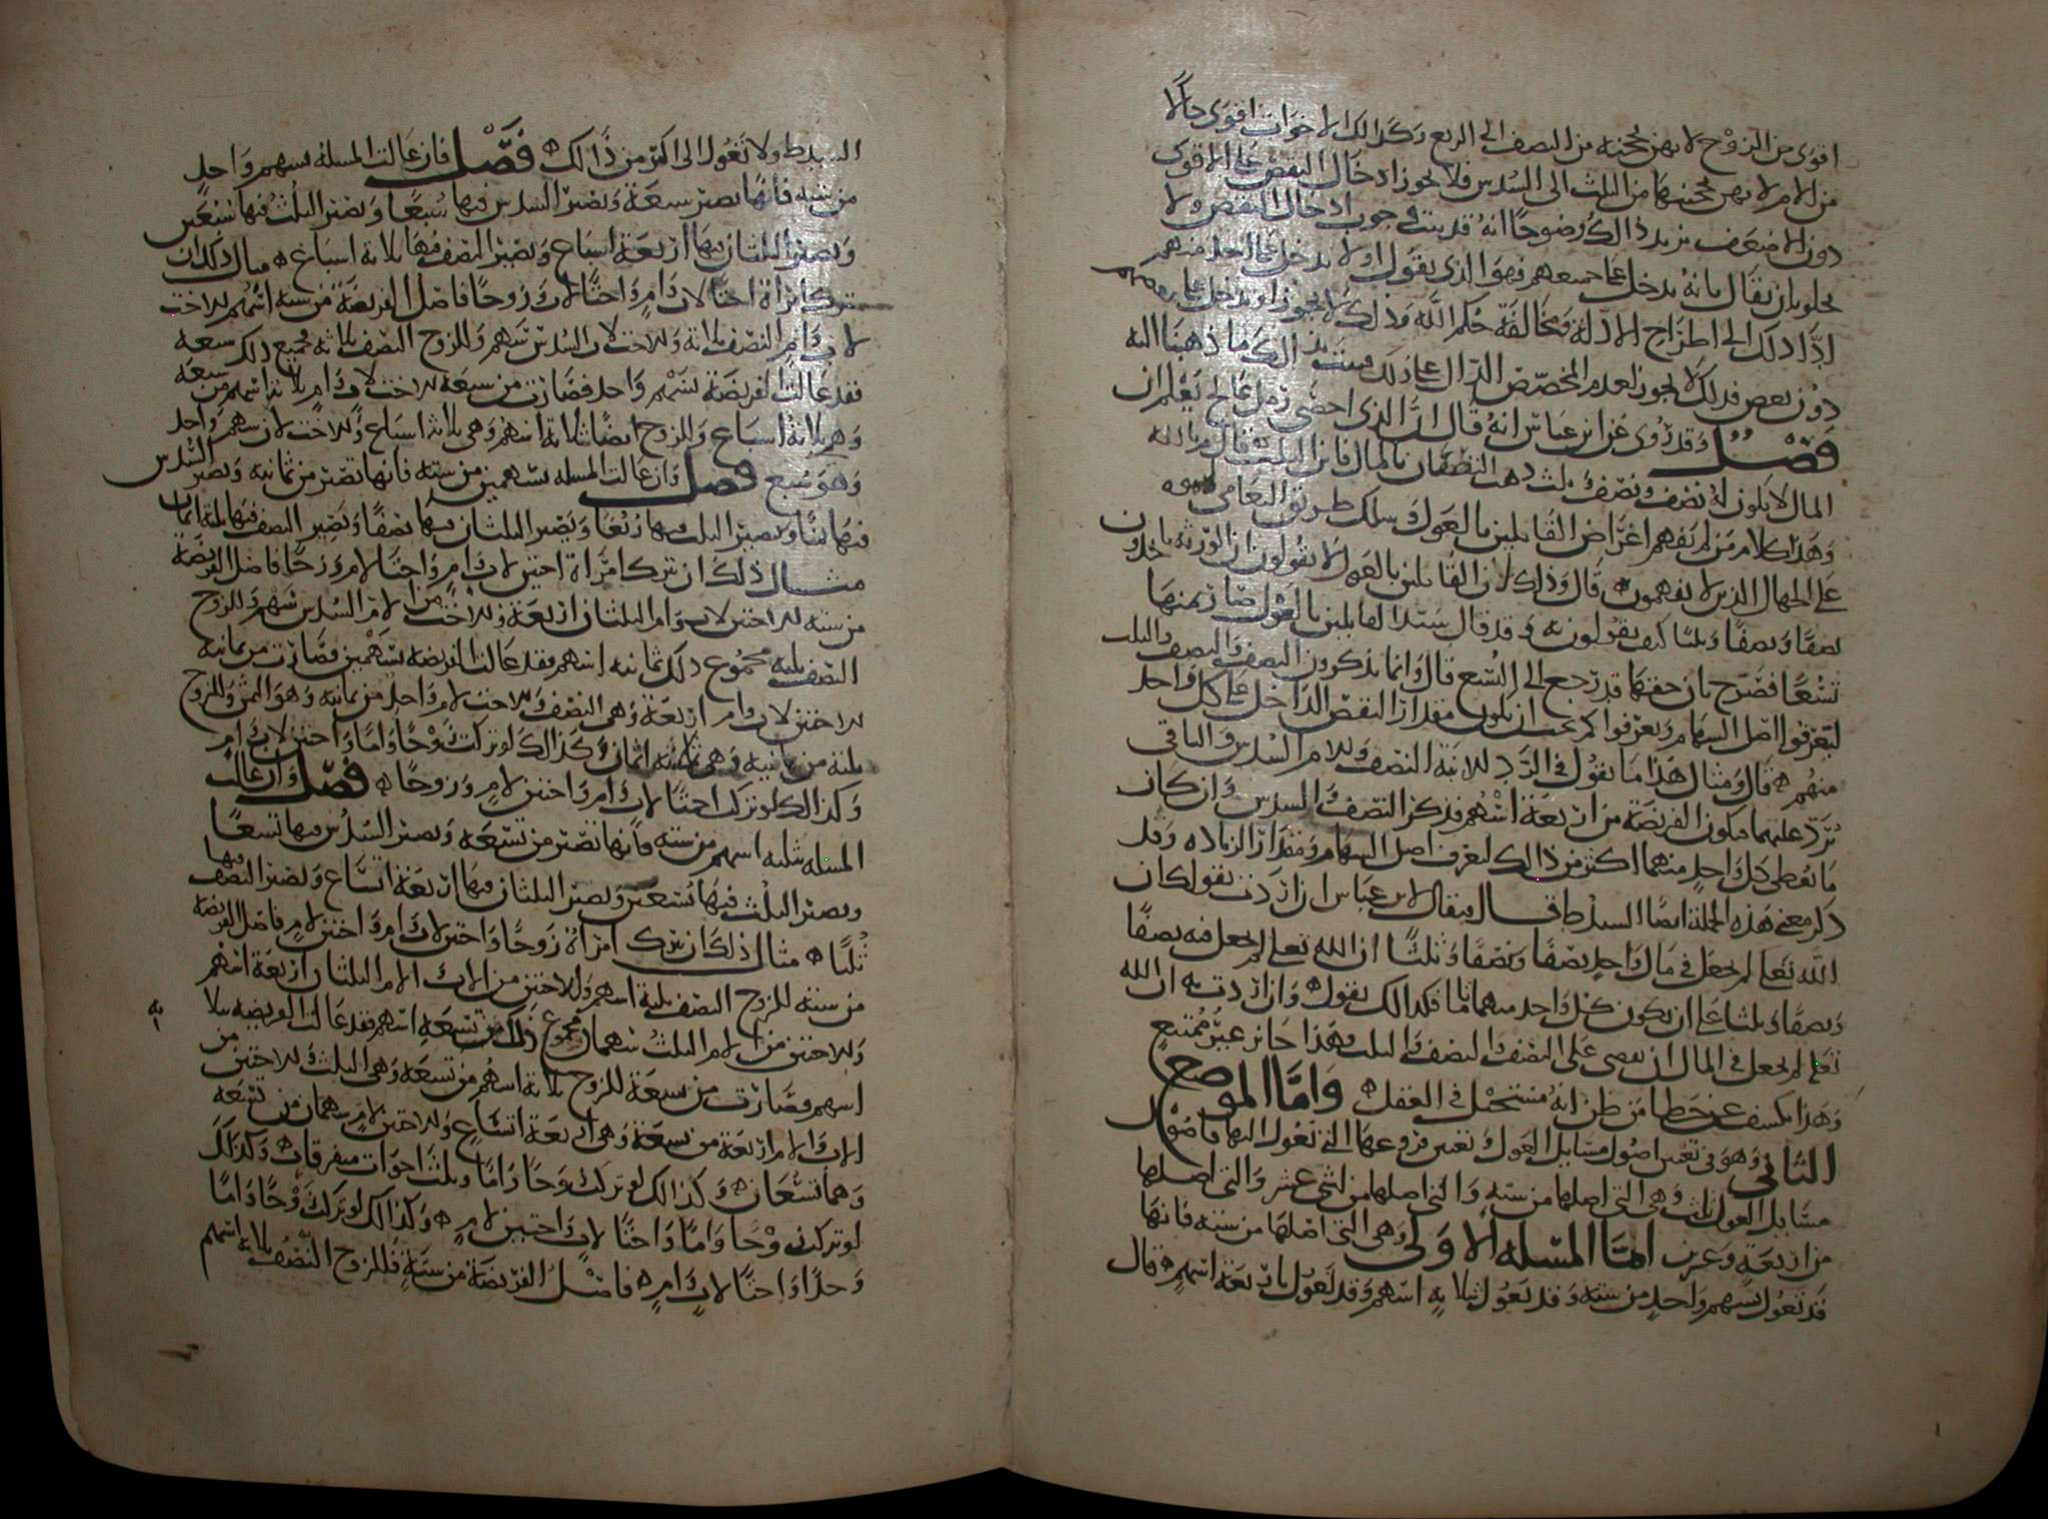 اقوى من الزوج لانهن يحجبنه من النصف الى الربع وكذلك الاخوات اقوى حالا
من الام لانهن يحجبنها من الثلث الى السدس فلا يجوز ادخال النقص على الاقوى
دون الاضعف يزيد ذالك وضوحا انه قد ثبت وجوب ادخال النقص ولا
يخلو بان يقال بانه يدخل على جميعهم فهو الذي نقول او لا يدخل على احد منهم
ادا ذلك الى اطراح الادلة ومخالفة حكم الله وذلك لا يجوز او يدخل على بعضهم
دون بعض فذلك لا يجوز لعدم المخصص الدال على ذلك فيثبت بذالك ما ذهبنا اليه
فصل وقد روى عن ابن عباس انه قال ان الذي احصى رمل عالج يعلم ان
المال لا يكون له نصف ونصف وثلث ذهب النصفان بالمال فاين الثلث قال
وهذا كلام من لم يفهم اغراض القائلين بالعول وسلك طريق التعامي
على الجهال الذين لا يفهمون قال وذلك لان القائلين بالعول لا يقولون ان الورثة ياخذون
نصفا ونصفا وثلثا كيف يقولون به وقد قال سيد القايلين بالعول صار ثمنها
تسعا فصرح بان حقها قد رجع الى التسع قال وانما يذكرون النصف والنصف والثلث
ليعرفوا اصل السهام ويعرفوا كم يجب ان يكون مقدار النقص الداخل على كل واحد
منهم قال ومثال هذا ما نقول في الرد للابنة النصف وللام السدس والباقي
يرد عليهما فتكون الفريضة من اربعة اسهم فذكر النصف والسدس وان كان
ما يعطى كل واحد منهما اكثر من ذالك ليعرف اصل السهام ومقدار الزيادة وقد
ذكر معنى هذه الجملة ايضا السيد ط قال فيقال لابن عباس ان اردت بقولك ان
الله تعلى لم يجعل في مال واحد نصفا ونصفا وثلثا ان الله تعلى لم يجعل فيه نصفا
ونصفا وثلثا على ان يكون كل واحد منهما تاما فكذالك نقول وان اردت به ان الله
تعلى لم يجعل في المال ان يقص على النصف والنصف والثلث فهذا جائز غير ممتنع
وهذا يكشف عن خطا من ظن انه مستحيل في العقل واما الموضع
الثاني وهو في تعيين اصول مسايل العول وتعيين فروعها التي تعول اليها فاصول
مسايل العول ثلث وهي التي اصلها من ستة والتي اصلها من اثني عشر والتي اصلها
من اربعة وعشرين اما المسلة الاولى وهي التي اصلها من ستة فانها
قد تعول بسهم واحد من ستة وقد تعول بثلاثة اسهم وقد تعول باربعة اسهم قال
السيد ط ولا تعول الى اكثر من ذالك فصل فان عالت المسلة بسهم واحد
من ستة فانها تصير سبعة ويصير السدس فيها سبعا ويصير الثلث فيها سبعين
ويصير الثلثان فيها اربعة اسباع ويصير النصف فيها ثلاثة اسباع مثال ذلك ان
تترك امراة اختا لاب وام واختا لاب وزوجا فاصل الفريضة من ستة اسهم للاخت
لاب وام النصف ثلاثة وللاخت لاب السدس سهم وللزوج النصف ثلاثة فجميع ذلك سبعة
فقد عالت الفريضة بسهم واحد فصارت من سبعة للاخت لاب وام ثلاثة اسهم من سبعة
وهي ثلاثة اسباع وللزوج ايضا ثلاثة اسهم وهي ثلاثة اسباع وللاخت لاب سهم واحد
وهو سبع فصل وان عالت المسلة بسهمين من ستة فانها تصير من ثمانية ويصير السدس
فيها ثمنا ويصير الثلث فيها ربعا ويصير الثلثان فيها نصفا ويصير النصف فيها ثلاثة اثمان
مثال ذلك ان تترك امراة اختين لاب وام واختا لام وزوجا فاصل الفريضة
من ستة للاختين لاب وام الثلثان اربعة وللاخت من الام السدس سهم وللزوج
النصف ثلثة فجموع ذلك ثمانية اسهم فقد عالت الفريضة بسهمين فصارت من ثمانية
للاختين لاب وام اربعة وهي النصف وللاخت لام واحد من ثمانية وهو الثمن وللزوج
ثلثة من ثمانية وهي ثلاثة اثمان وكذالك لو تركت زوجا واما واختين لاب وام
وكذالك لو تركت اختا لاب وام واختين لام وزوجا فصل وان عالت
المسلة بثلثة اسهم من ستة فانها تصير من تسعة ويصير السدس فيها تسعا
ويصير الثلث فيها تسعين ويصير الثلثان فيها اربعة اتساع ويصير النصف فيها
ثلثا مثال ذلك ان تترك امراة زوجا واختين لاب وام واختين لام فاصل الفريضة
من ستة للزوج النصف ثلثة اسهم وللاختين من الاب والام الثلثان اربعة اسهم
وللاختين من الام الثلث سهمان فجموع ذلك من تسعة اسهم فقد عالت الفريضة بثلاثة
اسهم فصارت من تسعة للزوج ثلاثة اسهم من تسعة وهي الثلث وللاختين من
الاب والام اربعة من تسعة وهي اربعة اتساع وللاختين لام سهمان من تسعة
وهما تسعان وكذالك لو تركت زوجا واما وثلث اخوات متفرقات وكذلك
لو تركت زوجا واما واختا لاب واختين لام وكذالك لو تركت زوجا واما
وجدا واختا لاب وام فاصل الفريضة من ستة فللزوج النصف ثلاثة اسهم